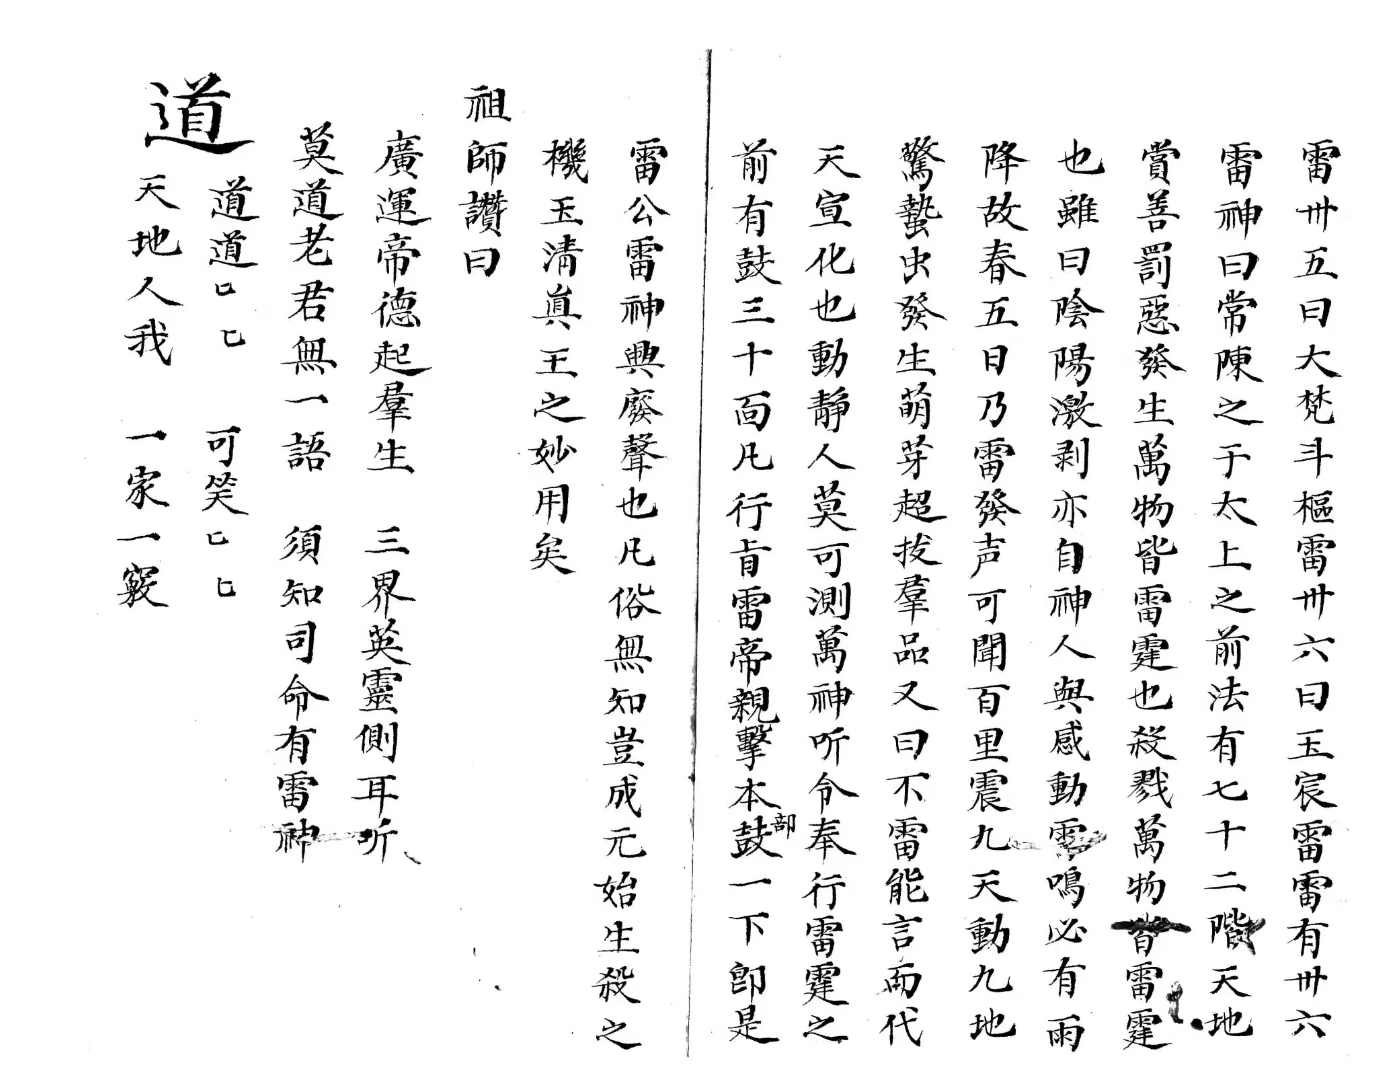 雷卅五曰大梵斗樞雷卅六曰玉宸雷雷有卅六
雷神曰常陳之于太上之前法有七十二階天地
賞善罰惡發生萬物皆雷霆也殺戮萬物皆雷霆
也雖曰陰陽激剥亦自神人與感動雷鳴必有雨
降故春五日乃雷發声可聞百里震九天動九地
驚蟄虫發生萌芽超拔羣品又曰不雷能言而代
天宣化也動靜人莫可測萬神听令奉行雷霆之
前有鼓三十面凡行盲雷帝親擊本部鼓一下即是
雷公雷神興廢聲也凡俗無知豈成元始生殺之
機玉清眞王之妙用矣
祖師讚曰
廣運帝德起羣生 三界英靈側耳听
莫道老君無一語 須知司命有雷神
道 道道㔾㔾 可笑㔾㔾
天地人我 一家一竅